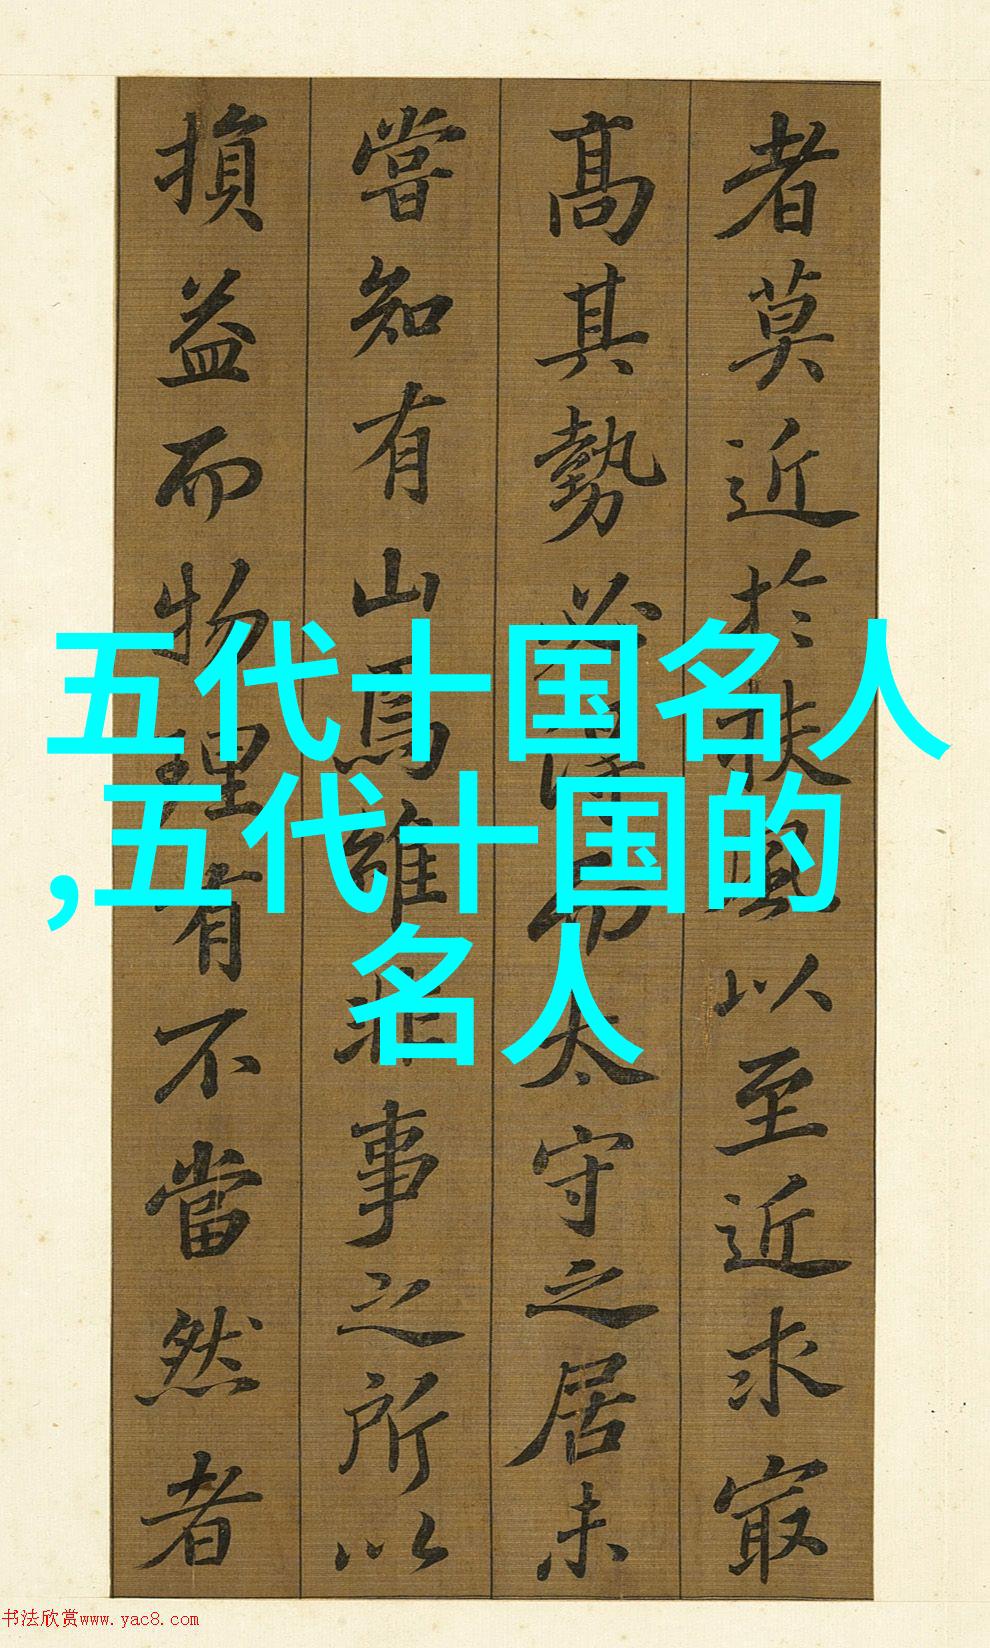 者莫近於扶風以至近求㝡
髙其勢必得而太守之居未
嘗知有山焉雖非事之所以
損益而物理有不當然者
五代十国名人
,五代十国的
名人
书法欣赏www.yac8.com